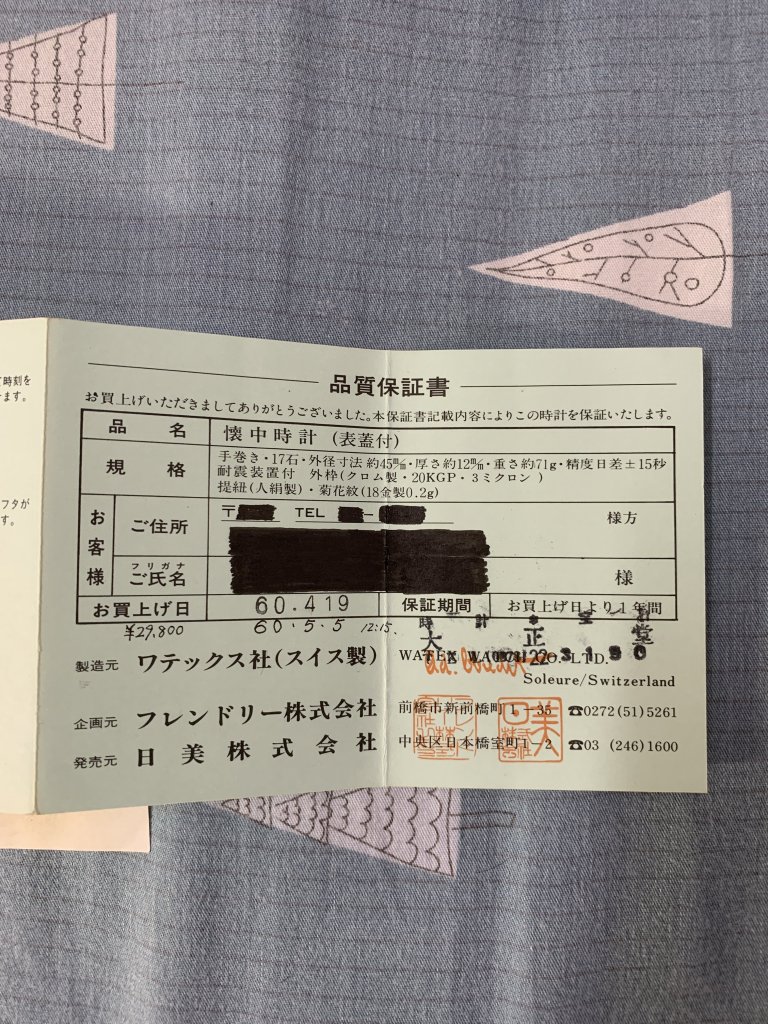 て時刻を
ます。
フタが
す。
品質保証書
お買上げいただきましてありがとうございました。本保証書記載内容によりこの時計を保証いたします。
品名 懐中時計 (表蓋付)
規格 手巻き・17石・外径寸法 約45m/m・厚さ約12m/m・重さ約71g・精度日差±15秒
耐震装置付 外枠(クロム製・20KGP・3ミクロン)
提紐(人絹製)・菊花紋(18金製0.2g)
お客様
ご住所 〒 TEL - 様方
フリガナ
ご氏名 様
お買上げ日 60.419 保証期間 お買上げ日より1年間
¥29,800 60.5.5 12:15.
時計
大正堂
製造元 ワテックス社(スイス製) WATEX WATCH CO. LTD.
22-3190
Soleure/Switzerland
企画元 フレンドリー株式会社 前橋市新前橋町1-35 ☎0272(51)5261
発売元 日美株式会社 中央区日本橋室町1-2 ☎03 (246)1600